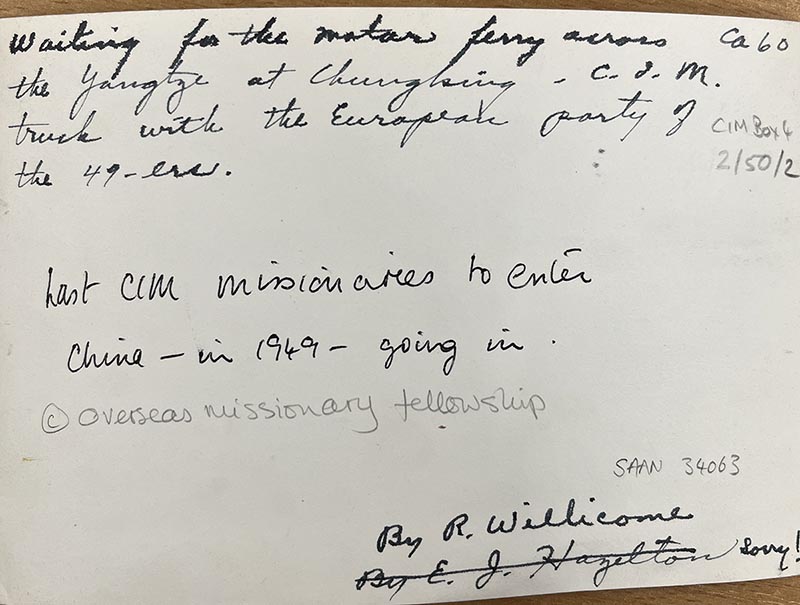 Waiting for the motor ferry across Ca 60
the Yangtze at Chungking - C.I.M.
truck with the European party of
the 49-ers.
CIM Box 4
2/50/2
Last CIM missionaries to enter
China - in 1949 - going in.
© Overseas missionary fellowship
SAAN 34063
By R. Willicome
By E. J. Hazelton Sorry!